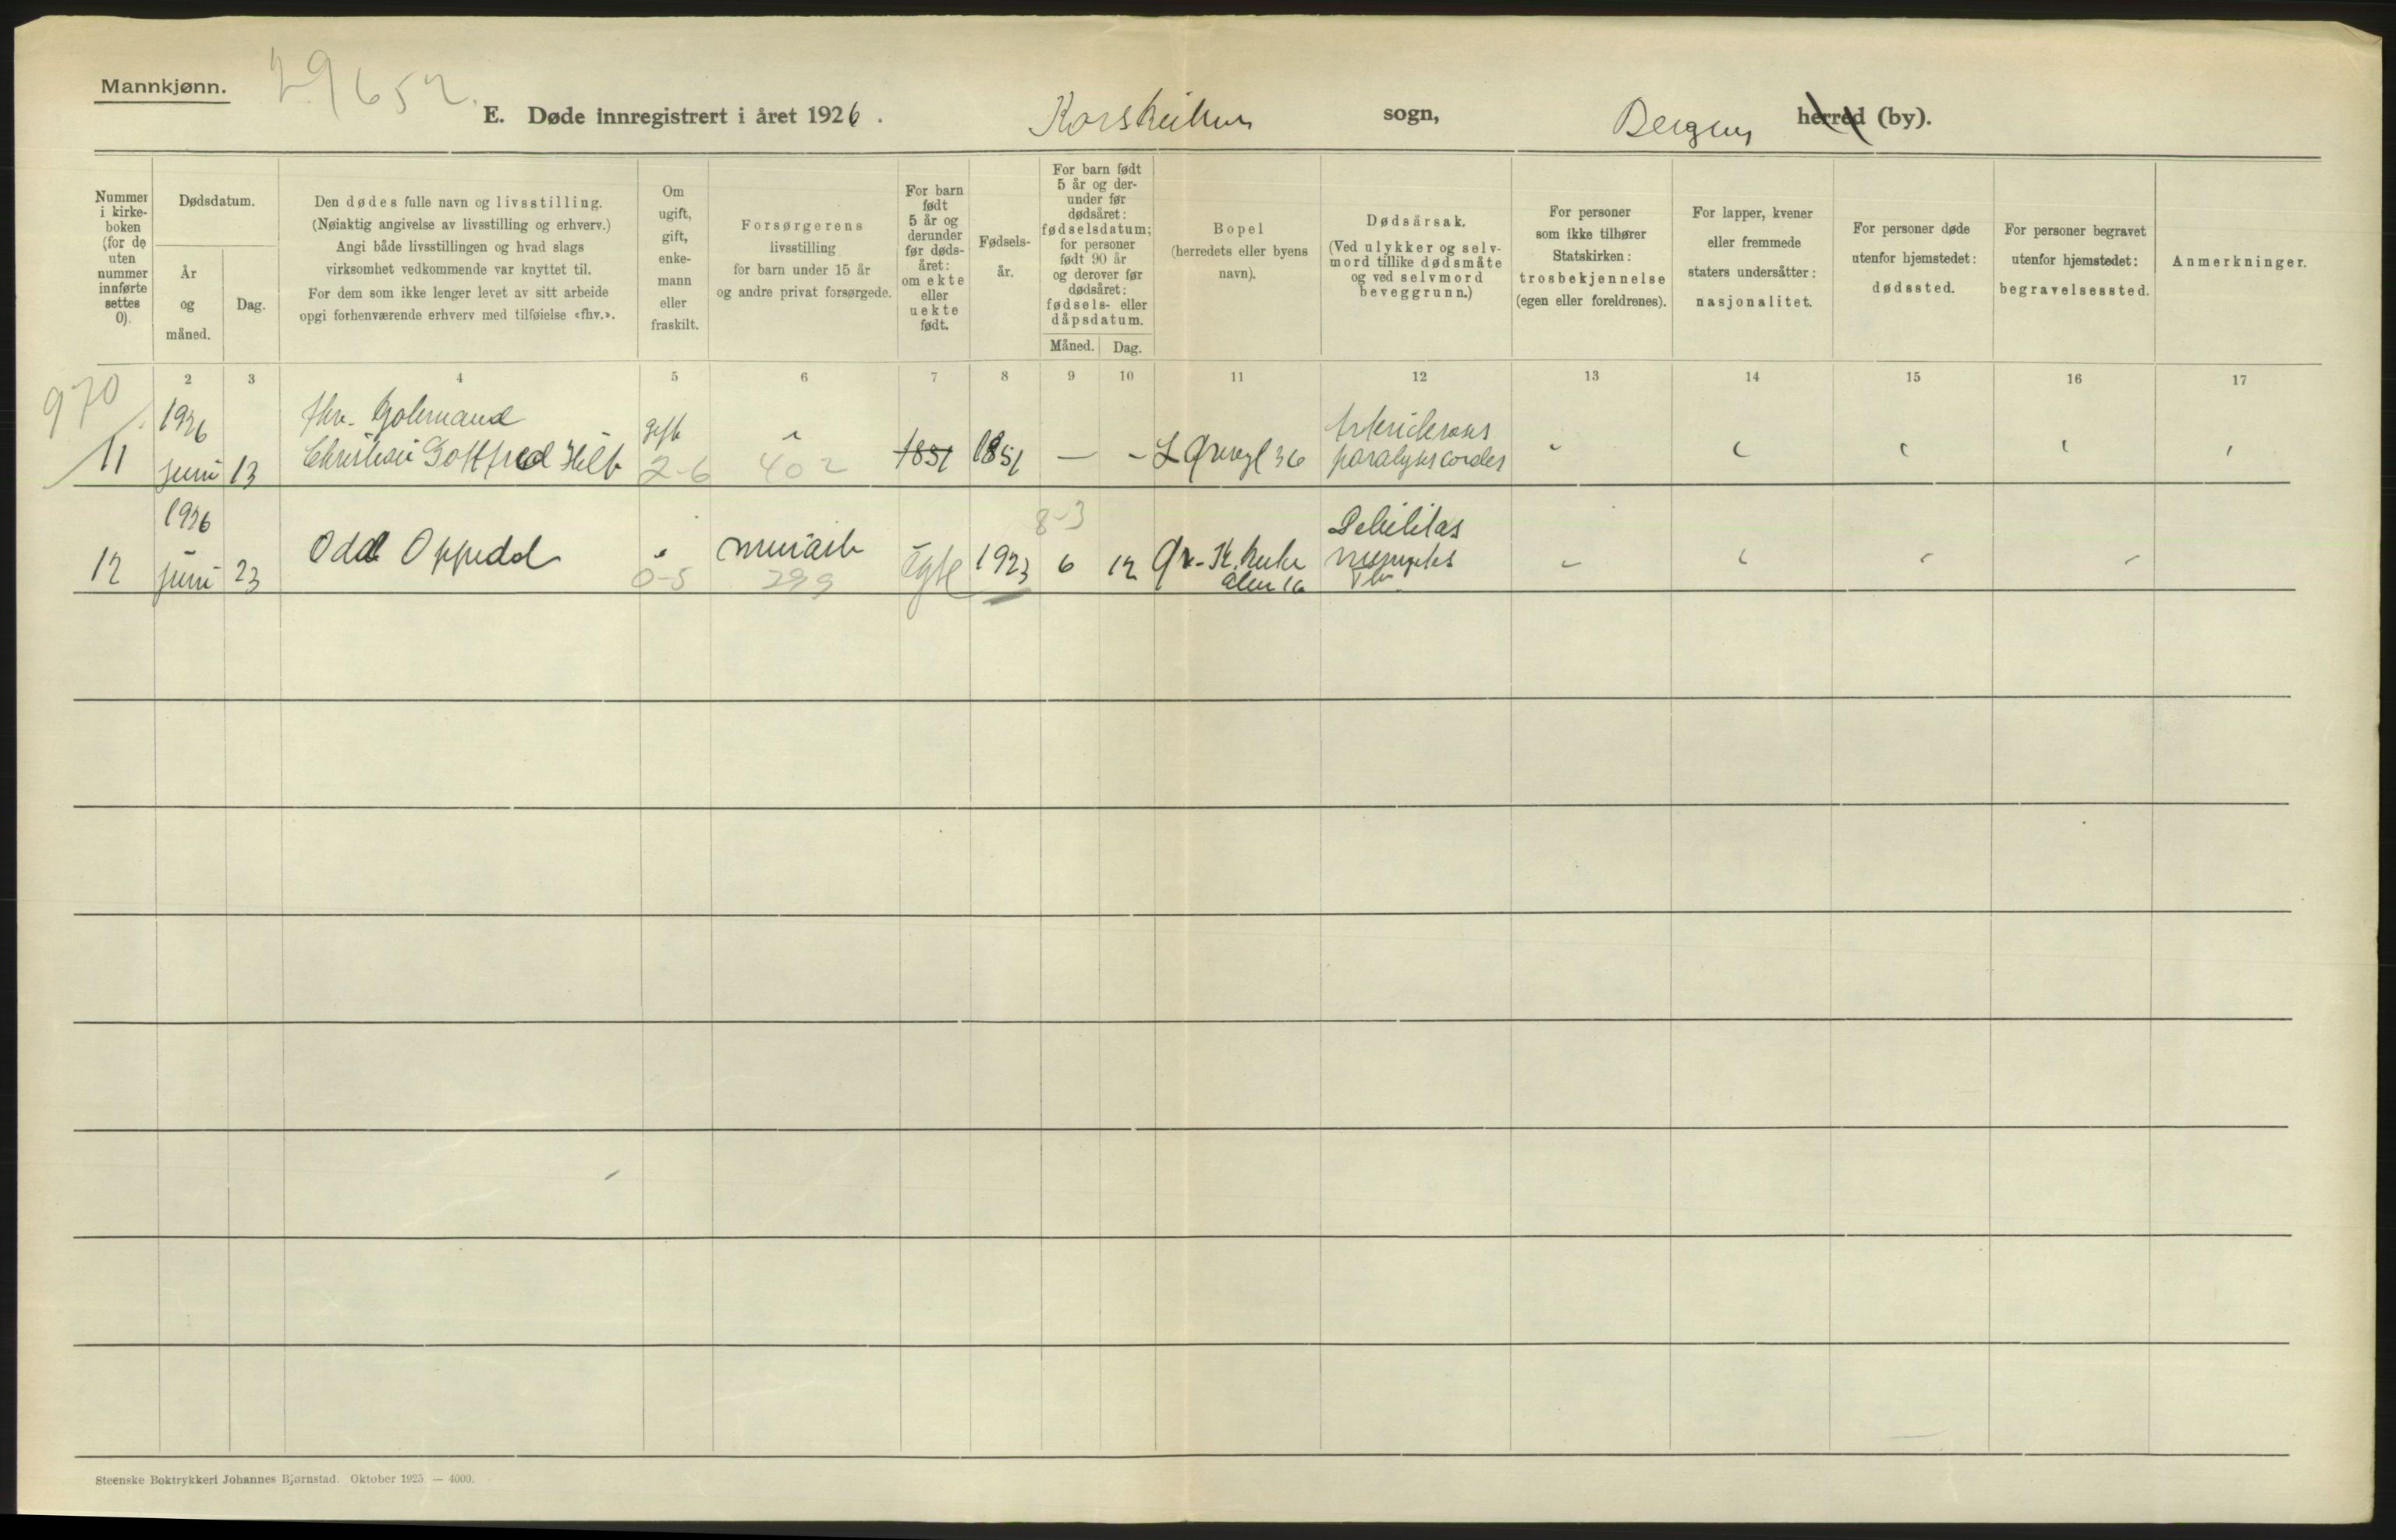 Mannkjønn.
29652.
E. Døde innregistrert i året 1926.
Korskirkens sogn, Bergens herred (by).
Nummer i kirke- boken (for de uten nummer innførte settes 0).
Dødsdatum.
År og måned.
Dag.
Den dødes fulle navn og livsstilling.
(Nøiaktig angivelse av livsstilling og erhverv.)
Angi både livsstillingen og hvad slags
virksomhet vedkommende var knyttet til.
For dem som ikke lenger levet av sitt arbeide
opgi forhenværende erhverv med tilføielse «fhv.».
Om ugift, gift, enke- mann eller fraskilt.
Forsørgerens
livsstilling
for barn under 15 år
og andre privat forsørgede.
For barn født 5 år og derunder før døds- året: om ekte eller uekte født.
Fødsels- år.
For barn født 5 år og der- under før dødsåret: fødselsdatum; for personer født 90 år og derover før dødsåret: fødsels- eller dåpsdatum.
Måned. Dag.
Bopel
(herredets eller byens
navn).
Dødsårsak.
(Ved ulykker og selv-
mord tillike dødsmåte
og ved selvmord
beveggrunn.)
For personer
som ikke tilhører
Statskirken:
trosbekjennelse
(egen eller foreldrenes).
For lapper, kvener
eller fremmede
staters undersåtter:
nasjonalitet.
For personer døde
utenfor hjemstedet:
dødssted.
For personer begravet
utenfor hjemstedet:
begravelsessted.
Anmerkninger.
2 3 4 5 6 7 8 9 10 11 12 13 14 15 16 17
970
1926 fhv. gift
11 juni 13 Gottfred 2-6 402 1851 1851 — - 36 paralysis cordis
1926 8-3 Debilitas
12 juni 23 Odd Oppedal 0-5 299 1923 6 12
16
Steenske Boktrykkeri Johannes Bjørnstad. Oktober 1925 — 4000.